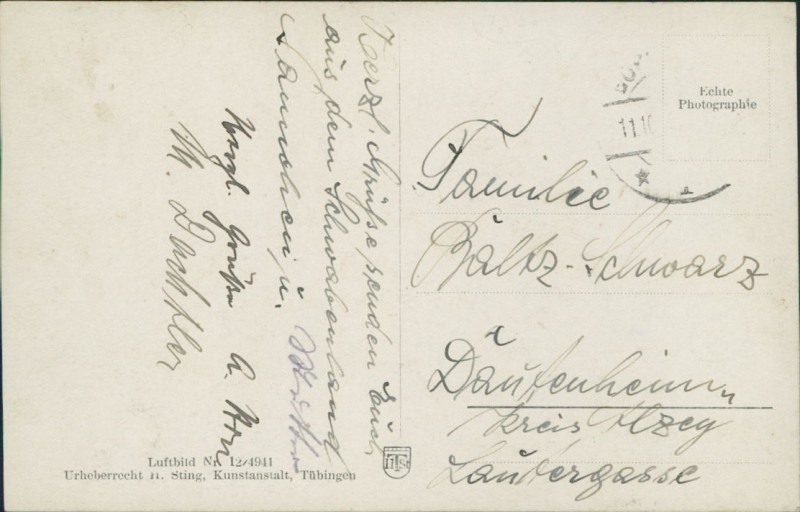 Herzl. Grüße senden Euch
aus dem Schwabenland
u.
Herzl. Grüße A.
M. Dachtler
Luftbild Nr. 12/4941
Urheberrecht H. Sting, Kunstanstalt, Tübingen
Echte
Photographie
11.10
Familie
Baltz-Schwarz
Dautenheim
Kreis Alzey
Laudergasse